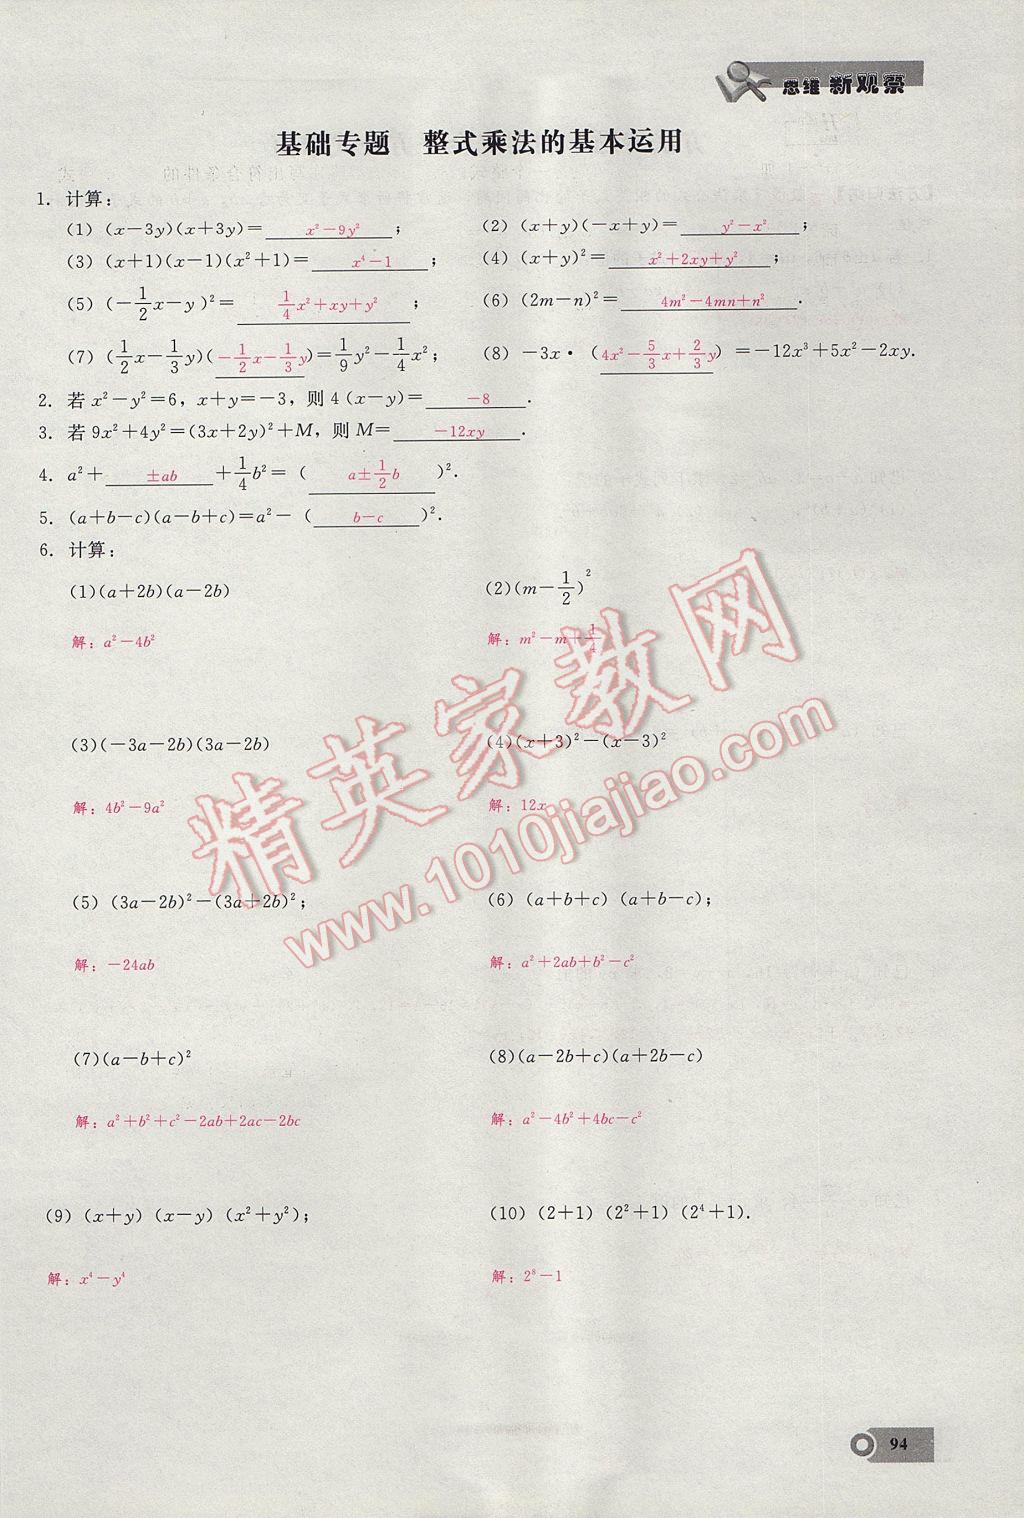 思维 新观察
基础专题 整式乘法的基本运用
1. 计算：
(1) (x－3y)(x＋3y)＝ x²－9y² ；
(2) (x＋y)(－x＋y)＝ y²－x² ；
(3) (x＋1)(x－1)(x²＋1)＝ x⁴－1 ；
(4) (x＋y)²＝ x²＋2xy＋y² ；
(5) (－1/2x－y )²＝ 1/4x²＋xy＋y² ；
(6) (2m－n)²＝ 4m²－4mn＋n² .
(7) (1/2x－1/3y)( －1/2x－1/3y )＝1/9y²－1/4x²；
(8) －3x·( 4x²－5/3x＋2/3y )＝－12x³＋5x²－2xy.
2. 若 x²－y²＝6，x＋y＝－3，则 4 (x－y)＝ －8 .
3. 若 9x²＋4y²＝(3x＋2y)²＋M，则 M＝ －12xy .
4. a²＋ ±ab ＋1/4b²＝( a±1/2b )².
5. (a＋b－c)(a－b＋c)＝a²－( b－c )².
6. 计算：
(1)(a＋2b)(a－2b)
(2)(m－1/2)²
解：a²－4b²
解：m²－m＋1/4
(3)(－3a－2b)(3a－2b)
(4)(x＋3)²－(x－3)²
解：4b²－9a²
解：12x
(5) (3a－2b)²－(3a＋2b)²；
(6) (a＋b＋c) (a＋b－c)；
解：－24ab
解：a²＋2ab＋b²－c²
(7)(a－b＋c)²
(8)(a－2b＋c)(a＋2b－c)
解：a²＋b²＋c²－2ab＋2ac－2bc
解：a²－4b²＋4bc－c²
(9) (x＋y) (x－y) (x²＋y²)；
(10) (2＋1) (2²＋1) (2⁴＋1).
解：x⁴－y⁴
解：2⁸－1
精英家教网
www.1010jiajiao.com
94